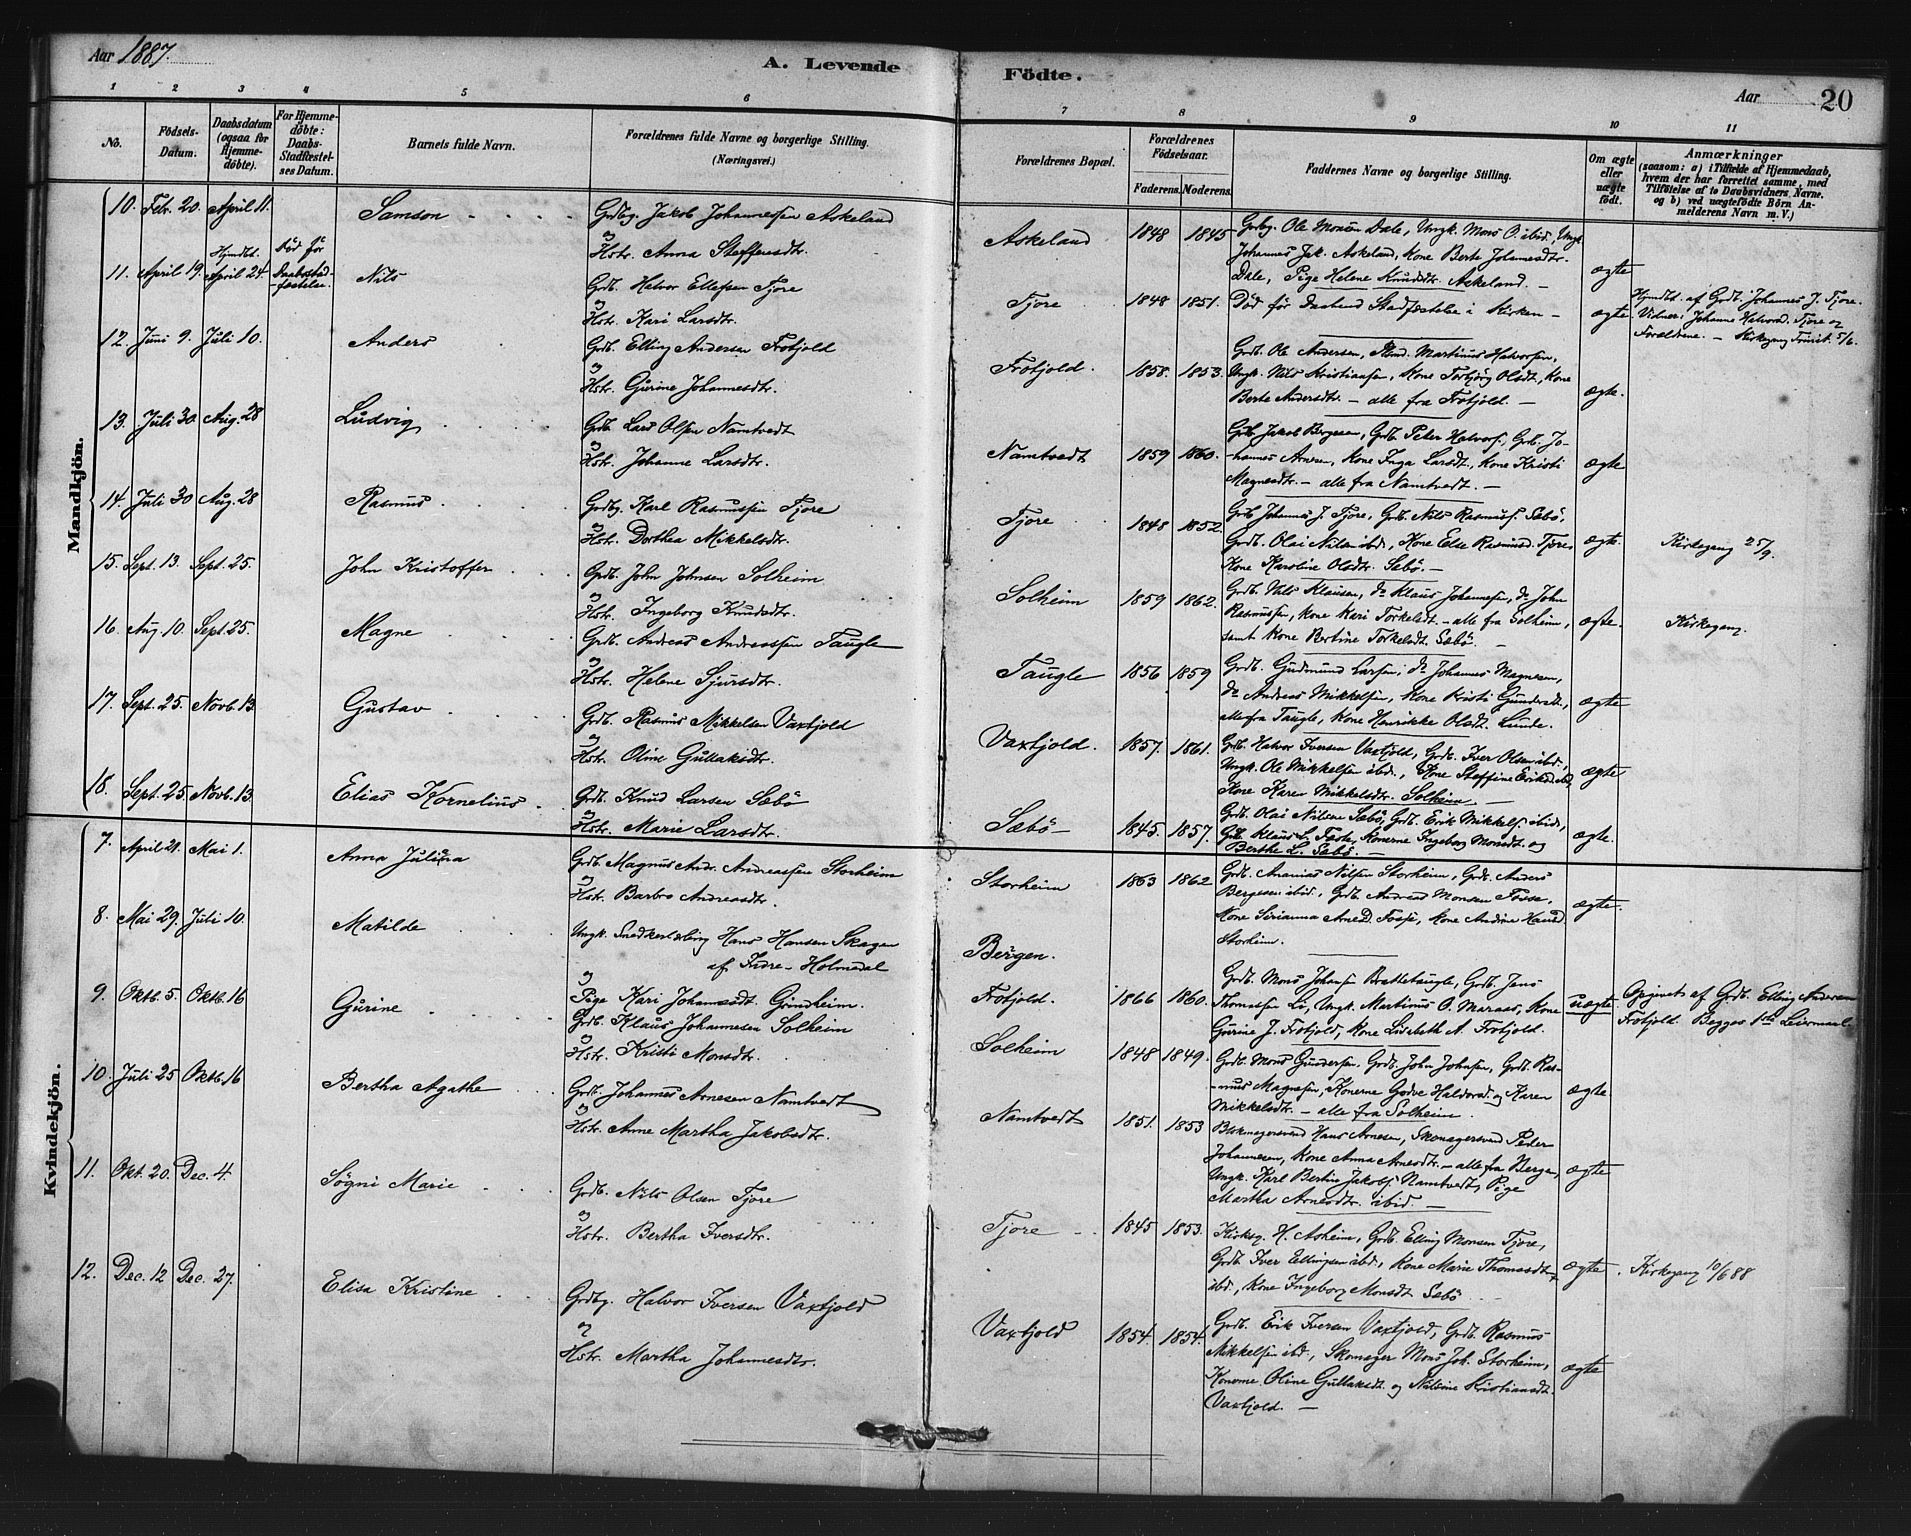 Aar 1887.
A. Levende Födte.
Aar 20
1 2 3 4 5 6 7 8 9 10 11
No.
Födsels-Datum.
Daabsdatum (ogsaa for Hjemme-döbte).
For Hjemme-döbte: Daabs-Stadfæstel-ses Datum.
Barnets fulde Navn.
Forældrenes fulde Navne og borgerlige Stilling. (Næringsvei.)
Forældrenes Bopæl.
Forældrenes Födselsaar.
Faderens. Moderens.
Faddernes Navne og borgerlige Stilling.
Om ægte eller uægte födt.
Anmærkninger
(saasom: a) i Tilfælde af Hjemmedaab,
hvem der har forrettet samme, med
Tilföielse af to Daabsvidners Navne.
og b) ved uægtefödte Börn An-
melderens Navn m. V.)
Mandkjön.
10. Febr. 20. April 11. Samson Grdbg. Jakob Johannessen Askeland
og
Hstr. Anna Steffensdtr.
Askeland 1848 1845 Grdbg. Ole Monsen Dale, Ungk. Mons O. ibid, Ungk.
Johannes Jak. Askeland, Kone Berte Johannesdtr.
Dale, Pige Helene Knudsdtr. Askeland. –
ægte
11. April 19. Hjmdbt. April 24. Död för Daabsstad-fæstelse Nils Grdb. Halvor Ellefsen Tjore
og
Hstr. Kari Larsdtr.
Tjore 1848 1851. Död för Daabens Stadfæstelse i Kirken –
ægte
Hjmdbt. af Grdb. Johannes J. Tjore.
Vidner: Johanne Halvorsd. Tjore og
Forældrene. –
12. Juni 9. Juli 10. Anders Grdb. Elling Andersen Frötjold
og
Hstr. Gurine Johannesdtr.
Frötjold. 1858. 1853. Grdb. Ole Andersen, Martinus Halvorsen,
Ungk. Nils Kristiansen, Kone Torbjörg Olsdt, Kone
Berte Andersdtr. – alle fra Frötjold. –
ægte.
13. Juli 30. Aug. 28 Ludvig Grdb. Lars Olsen Namtvedt
og
Hstr. Johanne Larsdtr.
Namtvedt 1859 1860. Grdb. Jakob Bergesen, Grdb. Peter Halvors., Grdb. Jo-
-hannes Arnesen, Kone Inga Larsdt., Kone Kristi
Magnesdtr. – alle fra Namtvedt. –
ægte
14. Juli 30 Aug. 28 Rasmus Grdbg. Karl Rasmussen Tjore
og
Hstr. Dorthea Mikkelsdtr.
Tjore 1848 1852. Grdb Johannes J. Tjore, Grdb. Nils Rasmuss. Sæbö,
Grdb. Olai Nilsen ibid, Kone Else Rasmusd. Tjore,
Kone Karoline Olsdtr. Sæbö. –
ægte. Kirkegang 25/9.
15. Sept. 13. Sept. 25. John Kristoffer Grdb. John Johnsen Solheim
og
Hstr. Ingeborg Knudsdtr.
Solheim 1859 1862. Grdb. Nils Klausen, do Klaus Johannesen, do John
Rasmussen, Kone Kari Torkelsdt. – alle fra Solheim,
samt Kone Bertine Torkelsdt. Sæbö.
ægte. Kirkegang.
16. Aug. 10. Sept. 25. Magne Grdb. Andreas Andreassen Taugle
og
Hstr. Helene Sjursdtr.
Taugle 1856 1859 Grdb. Gudmund Larsen, do Johannes Magnesen,
do Andreas Mikkelsen, Kone Kristi Gundersdt.,
alle fra Taugle, Kone Henrikke Olsdt. Lunde.
ægte
17. Sept. 25. Novb. 13. Gustav Grdb. Rasmus Mikkelsen Vaxtjold
og
Hstr. Oline Gullaksdt.
Vaxtjold. 1857. 1861. Grdb. Halvor Iversen Vaxtjold, Grdb. Iver Olsen ibd.,
Ungk. Ole Mikkelsen ibd., Kone Steffine Eriksd. ibd.
Kone Karen Mikkelsdtr. Solheim –
ægte
18. Sept. 25. Novb. 13. Elias Kornelius Grdb. Knud Larsen Sæbö
og
Hstr. Marie Larsdtr.
Sæbö – 1845. 1857. Grdb. Olai Nilsen Sæbö, Grdb. Erik Mikkels. ibid,
Grdb. Klaus L. Konerne Ingeborg Monsdt. og
Berthe L. Sæbö. –
ægte.
Kvindekjön.
7. April 21. Mai 1. Anna Juliana Grdb. Magnus Andr. Andreassen Storheim
og
Hstr. Barbro Andreasdtr.
Storheim 1863 1862 Grdb. Ananias Nilsen Storheim, Grdb. Anders
Bergesen ibid, Grdb. Andreas Monsen Fosse,
Kone Serianna Fosse, Kone Andrine
Storheim.
ægte.
8. Mai 29. Juli 10. Matilde Ungk. Hans Hansen Skagen
af Indre-Holmedal
og
Pige Kari Johannesdt. Gindheim.
Bergen.
Frötjold. 1866 1860. Grdb. Mons Johans. Brattetaugle, Grdb. Jens
Thomassen Lö, Ungk. Martinus O. Maraas, Kone
Gurine J. Frötjold, Kone Lisebeth A. Frötjold.
uægte. Opgivet af Grdb. Elling Andersen
Frötjold. Begges 1ste Leiermaal.
9. Oktb. 5. Oktb. 16 Gurine Grdb. Klaus Johannesen Solheim
og
Hstr. Kristi Monsdtr.
Solheim 1848 1849. Grdb. Mons Gundersen, Grdb. John Johnsen, Grdb. Ras-
-mus Magnesen, Konerne Godve Haldorsd. og Karen
Mikkelsdtr. – alle fra Solheim.
ægte.
10. Juli 25 Oktb. 16 Bertha Agathe Grdb. Johannes Arnesen Namtvedt
og
Hstr. Anne Martha Jakobsdtr.
Namtvedt 1851. 1853 Hans Arnesen, Skomagersvend Peder
Johannesen, Kone Anna Arnesdtr. – alle fra Bergen,
Ungk. Karl Bertin Jakobs. Namtvedt, Pige
Martha Arnesdtr. ibid. –
ægte
11. Okt. 20. Dec. 4. Sögni Marie Grdb. Nils Olsen Tjore
og
Hstr. Bertha Iversdtr.
Tjore 1845 1853. Kirkesg. H. Asheim, Grdb. Elling Monsen Tjore,
Grdb. Iver Ellingsen ibd., Kone Marie Thomasdt.
ibd., Kone Ingeborg Monsdt. Sæbö
ægte. Kirkegang 10/6 88
12. Dec. 12 Dec. 27. Elisa Kristine Grdbg. Halvor Iversen Vaxtjold
og
Hstr. Martha Johannesdtr.
Vaxtjold 1854. 1854. Grdb. Erik Iversen Vaxtjold, Grdb. Rasmus
Mikkelsen ibd., Skomager Mons Joh. Storheim,
Konerne Oline Gullaksdt. og Nilsine Kristiansdt.
Vaxtjold. –
ægte